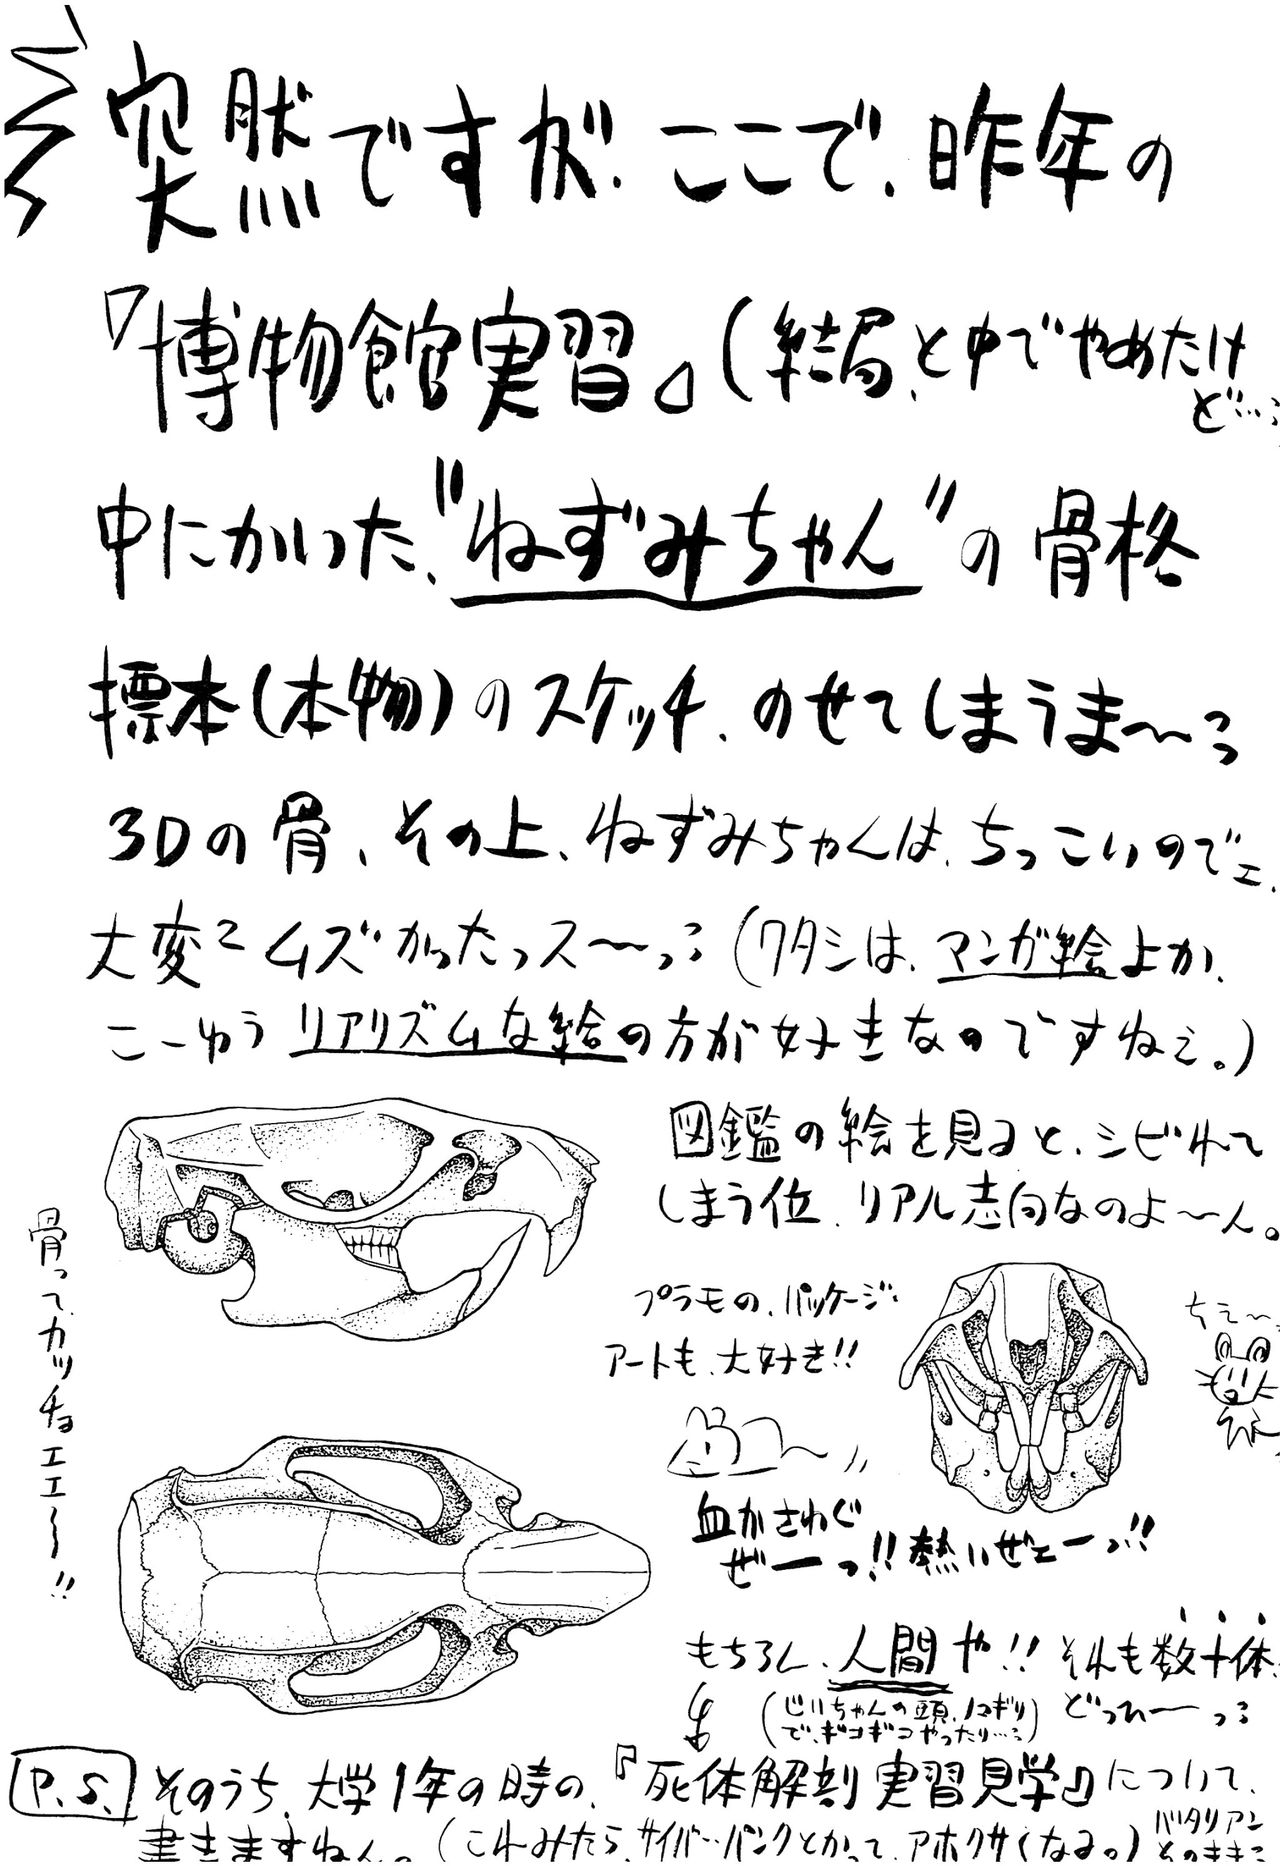 突然ですが、ここで、昨年の
『博物館実習』(結局、と中でやめたけ
ど…
中にかいった、"ねずみちゃん"の骨格
標本(本物)のスケッチ、のせてしまうま〜っ
3Dの骨、その上、ねずみちゃんは、ちっこいのでェ、
大変ムズかったっス〜っ (ワタシは、マンガ絵よか、
こーゆうリアリズムな絵の方が好きなのですねェ。)
図鑑の絵を見ると、シビれて
しまう位、リアル志向なのよ〜ん。
骨って、カッチョエエ〜!!
プラモの、パッケージ
アートも、大好き!!
ちぇ〜
血がさわぐ
ぜーっ!! 熱いぜェーっ!!
もちろん、人間や!! それも数十体
(じいちゃんの頭、ノコギリ
で、ギコギコやったり…) どっれーっ
P.S. そのうち、大学1年の時の、『死体解剖実習見学』について、
書きますねん。(これみたら、サイバーパンクとかって、アホクサくなる。) バタリアン
そのまま